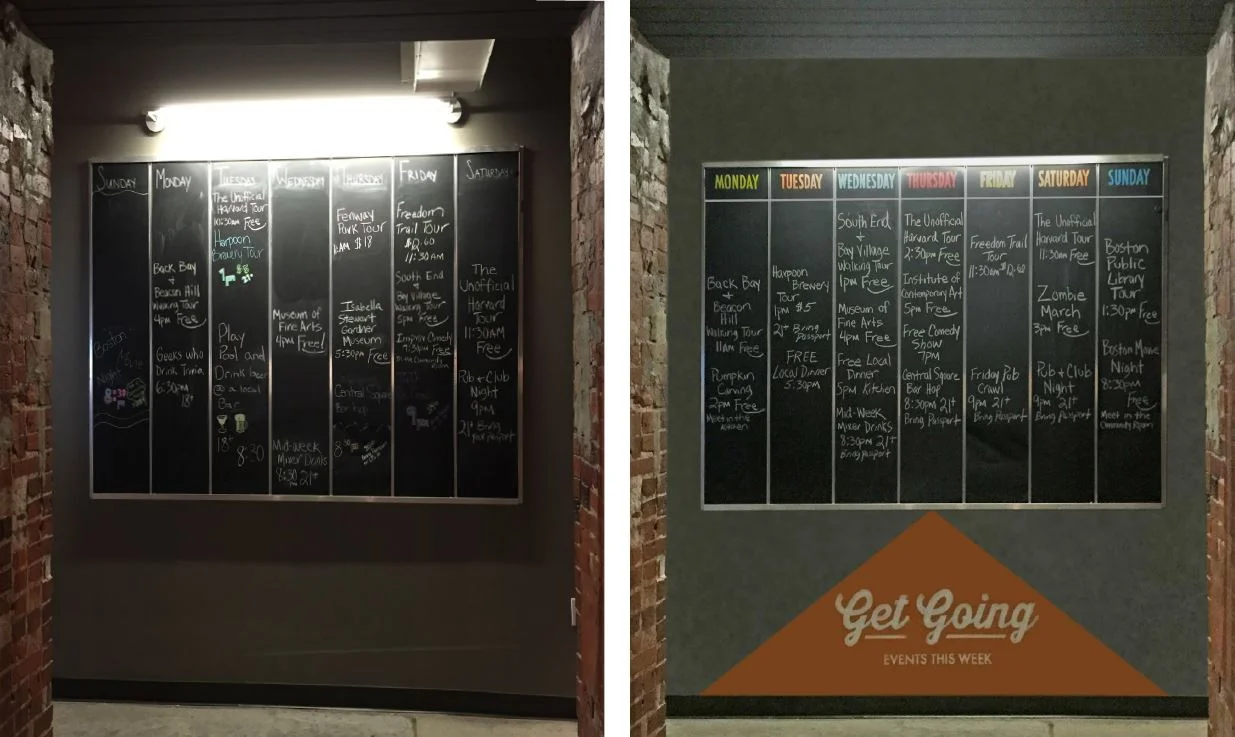 SUNDAY
Boston
Night
8:30
MONDAY
Back Bay
+
Beacon Hill
Walking Tour
4pm Free
Geeks who
Drink Trivia
6:30pm
18+
TUESDAY
The Unofficial
Harvard Tour
10:30am Free
Harpoon
Brewery Tour
1pm $5
21+
Play
Pool and
Drink beer
@ a local
Bar
18+
8:30
WEDNESDAY
Museum of
Fine Arts
4pm Free!
Mid-week
Mixer Drinks
8:30 21+
pm
THURSDAY
Fenway
Park Tour
AM $18
Isabella
Stewart
Gardner
Museum
5:30pm Free
Central Square
Bar hop
8:30
FRIDAY
Freedom
Trail Tour
11:30AM
South End
+
Bay Village
Walking Tour
5pm Free
Improv Comedy
7:30pm Free
SATURDAY
The
Unofficial
Harvard
Tour
11:30AM
Free
Pub + Club
Night
9pm
21+ Bring
Your passport
MONDAY
Back Bay
+
Beacon
Hill
Walking Tour
11am Free
Pumpkin
Carving
2pm Free
Meet in the
Kitchen
TUESDAY
Harpoon
Brewery
Tour
1pm $5
21+ Bring
Passport
FREE
Local Dinner
5:30pm
WEDNESDAY
South End
+
Bay Village
Walking Tour
1pm Free
Museum of
Fine Arts
4pm Free
Free Local
Dinner
5pm Kitchen
Mid-Week
Mixer Drinks
8:30pm 21+
Bring Passport
THURSDAY
The Unofficial
Harvard Tour
2:30pm Free
Institute of
Contemporary Art
5pm Free
Free Comedy
Show
7pm
Central Square
Bar Hop
8:30pm 21+
Bring Passport
FRIDAY
Freedom Trail
Tour
11:30am $12.60
Friday Pub
Crawl
9pm 21+
Bring Passport
SATURDAY
The Unofficial
Harvard Tour
11:30am Free
Zombie
March
3pm Free
Pub + Club
Night
9pm 21+
Bring Passport
SUNDAY
Boston
Public
Library
Tour
1:30pm Free
Boston Movie
Night
8:30pm
Free
Meet in the
Community Room
Get Going
EVENTS THIS WEEK